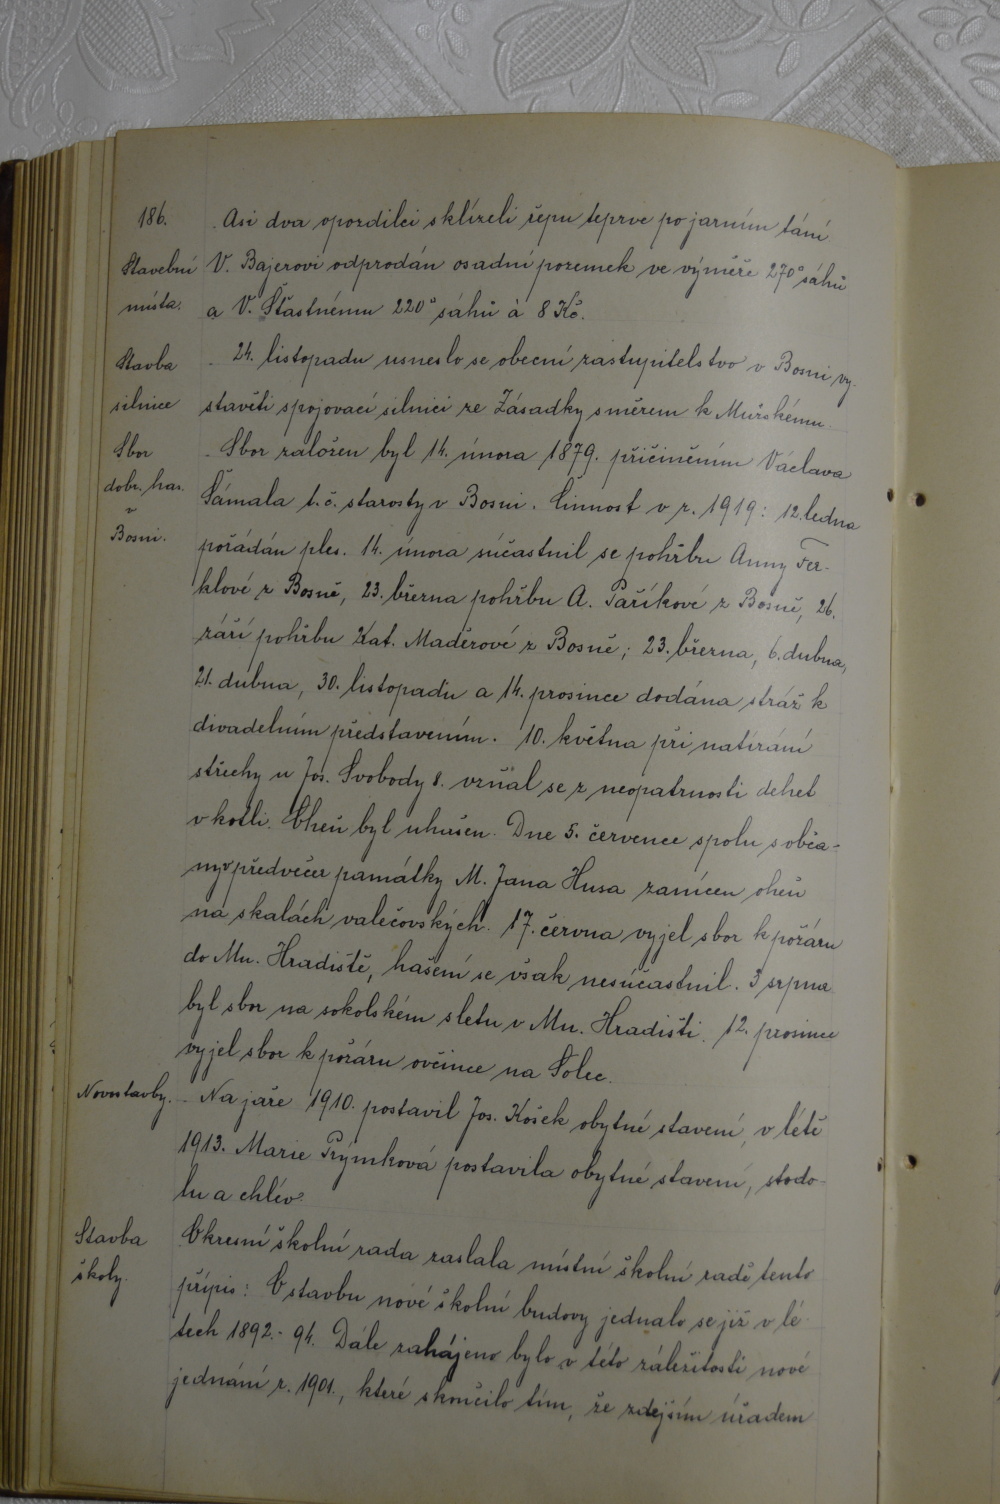 186.
Asi dva opozdilci sklízeli řepu teprve po jarním tání
Stavební místa.
V. Bajerovi odprodán osadní pozemek ve výměře 270° sáhů
a V. Šťastnému 220° sáhů à 8 Kč.
Stavba silnice
24. listopadu usneslo se obecní zastupitelstvo v Bosni vy-
stavěti spojovací silnici ze Zásadky směrem k Mužskému.
Sbor dobr. has. v Bosni.
Sbor založen byl 14. února 1879. přičiněním Václava
Šámala t. č. starosty v Bosni. Činnost v r. 1919: 12. ledna
pořádán ples. 14. února súčastnil se pohřbu Anny Fer-
klové z Bosně, 23. března pohřbu A. Paříkové z Bosně, 26.
září pohřbu Kat. Maděrové z Bosně; 23. března, 6. dubna,
21. dubna, 30. listopadu a 14. prosince dodána stráž k
divadelním představením. 10. května při natírání
střechy u Jos. Svobody 8. vzňal se z neopatrnosti dehet
v kotli. Oheň byl uhašen. Dne 5. července spolu s obča-
ny v předvečer památky M. Jana Husa zanícen oheň
na skalách valečovských. 17. června vyjel sbor k požáru
do Mn. Hradiště, hašení se však nesúčastnil. 3 srpna
byl sbor na sokolském sletu v Mn. Hradišti. 12. prosince
vyjel sbor k požáru ovčince na Solec.
Novostavby.
Na jaře 1910. postavil Jos. Košek obytné stavení, v létě
1913. Marie Rýmková postavila obytné stavení, stodo-
lu a chlév.
Stavba školy.
Okresní školní rada zaslala místní školní radě tento
přípis: O stavbu nové školní budovy jednalo se již v lé-
tech 1892.- 94. Dále zahájeno bylo v této záležitosti nové
jednání r. 1901., které skončilo tím, že zdejším úřadem